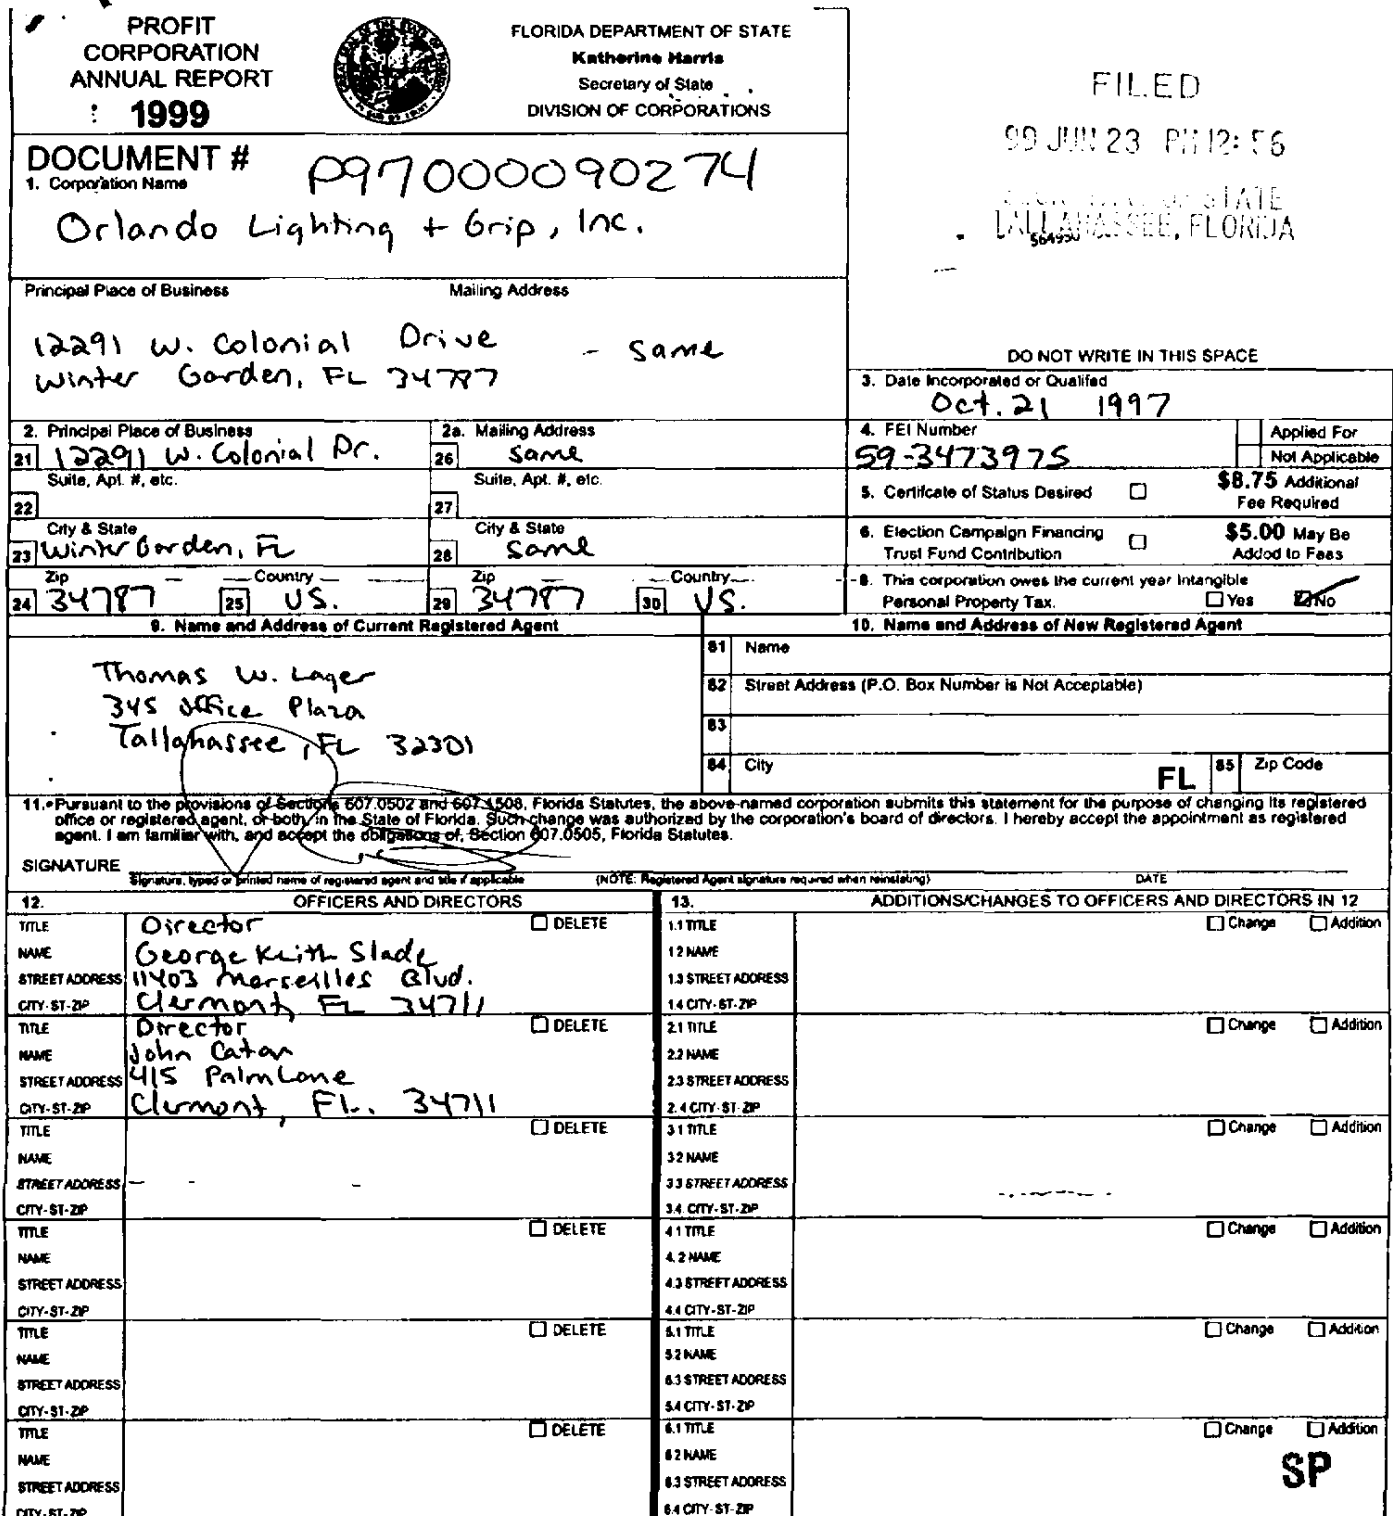 PROFIT
CORPORATION
ANNUAL REPORT
1999
FLORIDA DEPARTMENT OF STATE
Katherine Harris
Secretary of State
DIVISION OF CORPORATIONS
FILED
99 JUN 23 PM 12: 56
OF STATE
TALLAHASSEE, FLORIDA
DOCUMENT # P97000090274
1. Corporation Name
Orlando Lighting + Grip, Inc.
Principal Place of Business Mailing Address
12291 W. Colonial Drive - Same
Winter Garden, FL 34787
DO NOT WRITE IN THIS SPACE
3. Date Incorporated or Qualifed
Oct. 21 1997
2. Principal Place of Business
21 12291 W. Colonial Dr.
Suite, Apt. #, etc.
22
City & State
23 Winter Garden, FL
Zip Country
24 34787 25 US.
2a. Mailing Address
26 Same
Suite, Apt. #, etc.
27
City & State
28 Same
Zip Country
29 34787 30 US.
4. FEI Number
59-3473975
Applied For
Not Applicable
5. Certifcate of Status Desired
$8.75 Additional
Fee Required
6. Election Campaign Financing
Trust Fund Contribution
$5.00 May Be
Added to Fees
8. This corporation owes the current year Intangible
Personal Property Tax. Yes No
9. Name and Address of Current Registered Agent
Thomas W. Lager
345 Office Plaza
Tallahassee, FL 32301
10. Name and Address of New Registered Agent
81 Name
82 Street Address (P.O. Box Number is Not Acceptable)
83
84 City FL 85 Zip Code
11. Pursuant to the provisions of Sections 607.0502 and 607.1508, Florida Statutes, the above-named corporation submits this statement for the purpose of changing its registered
office or registered agent, or both, in the State of Florida. Such change was authorized by the corporation's board of directors. I hereby accept the appointment as registered
agent. I am familiar with, and accept the obligations of, Section 607.0505, Florida Statutes.
SIGNATURE
Signature, typed or printed name of registered agent and title if applicable (NOTE: Registered Agent signature required when reinstating) DATE
12. OFFICERS AND DIRECTORS
TITLE Director DELETE
NAME George Keith Slade
STREET ADDRESS 11403 Marseilles Blvd.
CITY-ST-ZIP Clermont, FL 34711
TITLE Director DELETE
NAME John Catan
STREET ADDRESS 415 Palm Lane
CITY-ST-ZIP Clermont, FL. 34711
TITLE DELETE
NAME
STREET ADDRESS
CITY-ST-ZIP
TITLE DELETE
NAME
STREET ADDRESS
CITY-ST-ZIP
TITLE DELETE
NAME
STREET ADDRESS
CITY-ST-ZIP
TITLE DELETE
NAME
STREET ADDRESS
CITY-ST-ZIP
13. ADDITIONS/CHANGES TO OFFICERS AND DIRECTORS IN 12
1.1 TITLE Change Addition
1.2 NAME
1.3 STREET ADDRESS
1.4 CITY-ST-ZIP
2.1 TITLE Change Addition
2.2 NAME
2.3 STREET ADDRESS
2.4 CITY-ST-ZIP
3.1 TITLE Change Addition
3.2 NAME
3.3 STREET ADDRESS
3.4. CITY-ST-ZIP
4.1 TITLE Change Addition
4.2 NAME
4.3 STREET ADDRESS
4.4 CITY-ST-ZIP
5.1 TITLE Change Addition
5.2 NAME
5.3 STREET ADDRESS
5.4 CITY-ST-ZIP
6.1 TITLE Change Addition
6.2 NAME
6.3 STREET ADDRESS
6.4 CITY-ST-ZIP
SP